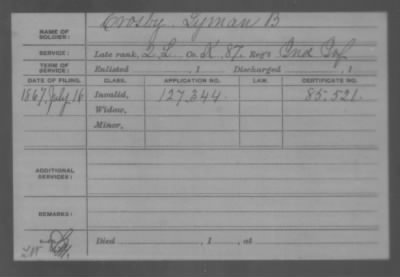 NAME OF SOLDIER: Crosby, Lyman B
SERVICE: Late rank, 2 L Co. K, 87. Reg't Ind Inf
TERM OF SERVICE: Enlisted , 1 Discharged , 1
DATE OF FILING. CLASS. APPLICATION NO. LAW. CERTIFICATE NO.
1867, July 16 Invalid, 127,344. 85,521.
Widow,
Minor,
ADDITIONAL SERVICES:
REMARKS:
Died , 1 , at